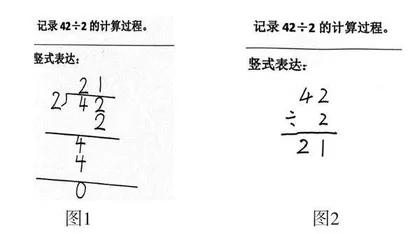 记录 42÷2 的计算过程。
竖式表达:
21
2)42
2
4
4
0
图1
记录 42÷2 的计算过程。
竖式表达:
42
÷ 2
21
图2